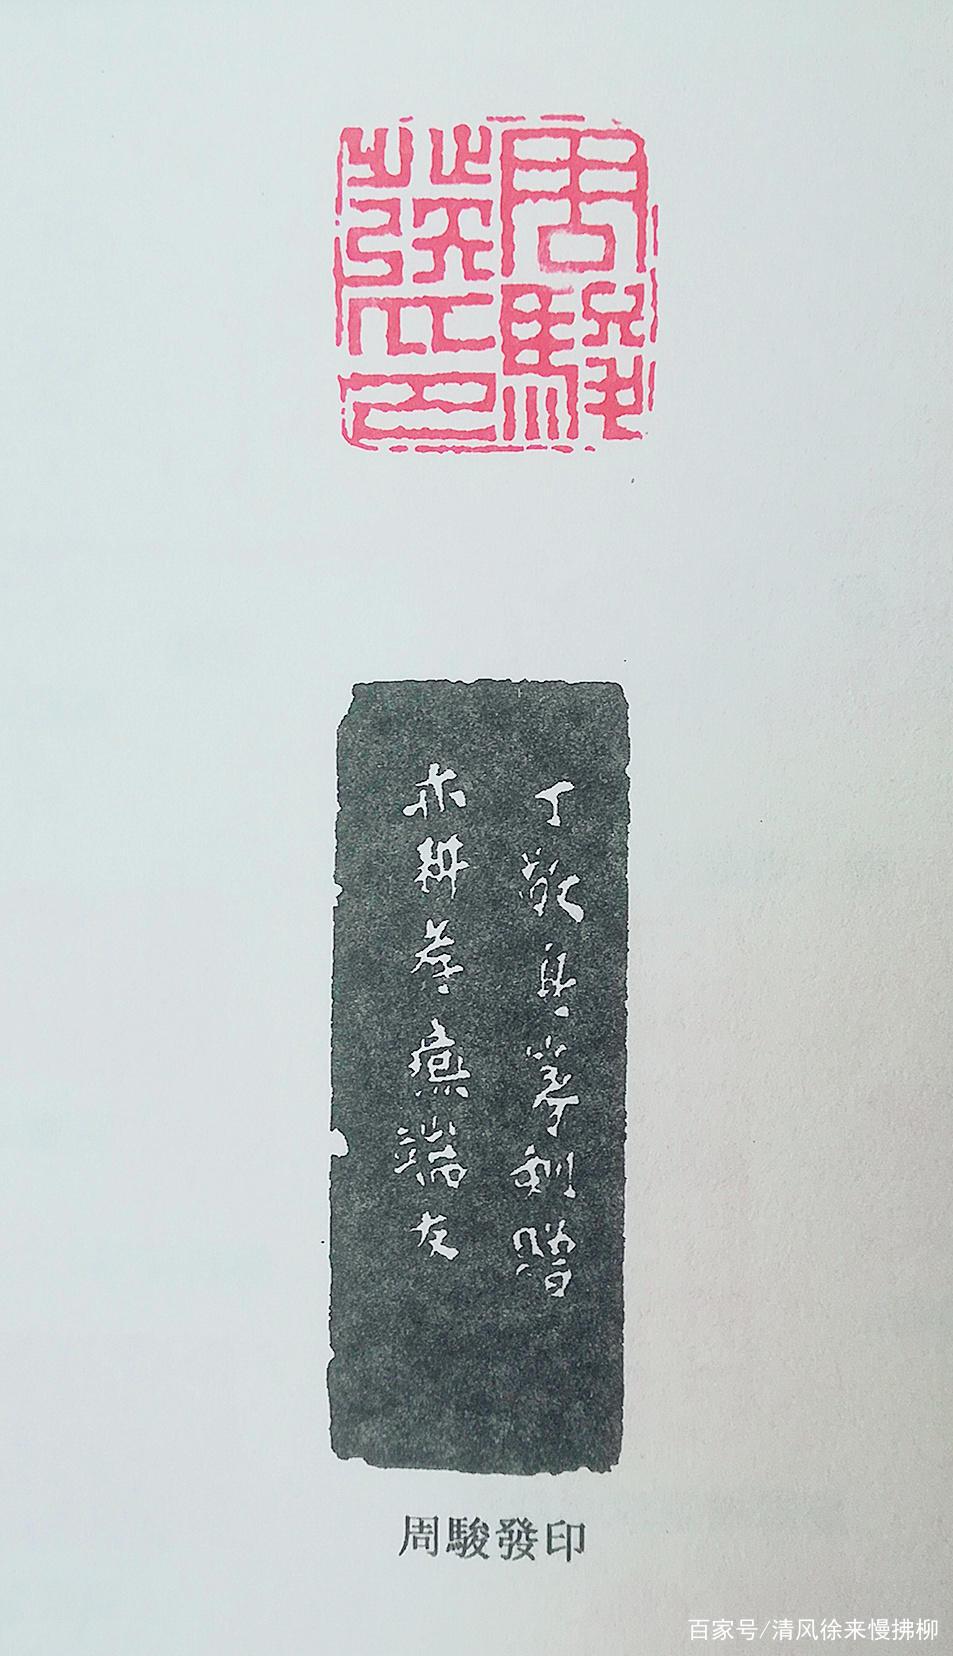 周駿
發印
丁敬身篆刻贈
亦耕孝廉端友
周駿發印
百家号/清风徐来慢拂柳